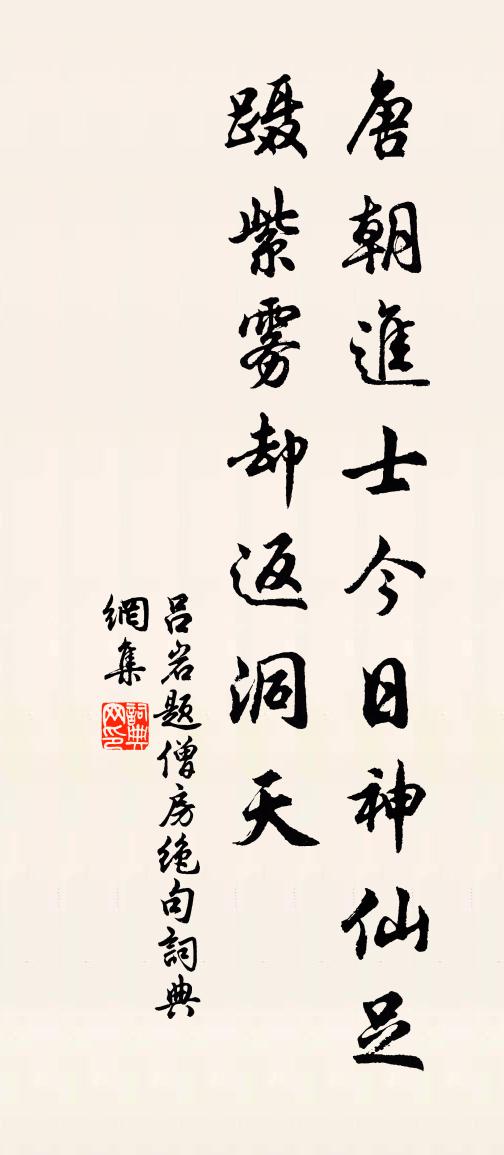 唐朝進士今日神仙足
蹑紫雾却返洞天
吕岩题僧房绝句詞典
網集
詞典网印